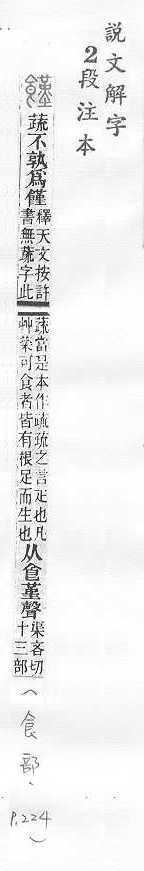 說文解字
2段注本
饉 蔬不孰爲饉釋天文按許書無蔬字此蔬當是本作疏疏之言疋也凡艸菜可食者皆有根足而生也从食堇聲渠吝切十三部(食部、P.224)